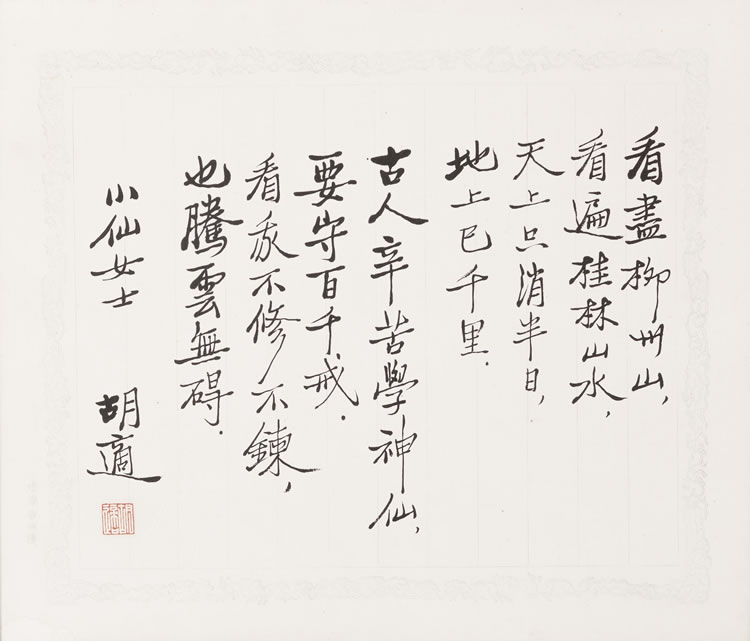 看盡柳州山，
看遍桂林山水，
天上只消半日，
地上已千里．
古人辛苦學神仙，
要守百千戒．
看我不修不鍊，
也騰雲無碍．
小仙女士 胡適
胡適